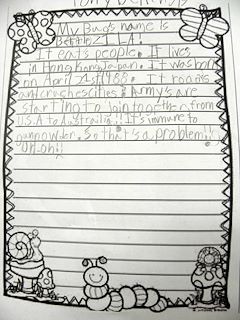 My Bug's name is
It eats people. It lives
in Hong Kong Japan. It was born
on April 21st 1988. It roams
and crushes cities! Army's are
starting to join together from
U.S.A to Australia!! It's immune to
gunpowder. So that's a problem!!
Uh-oh!!